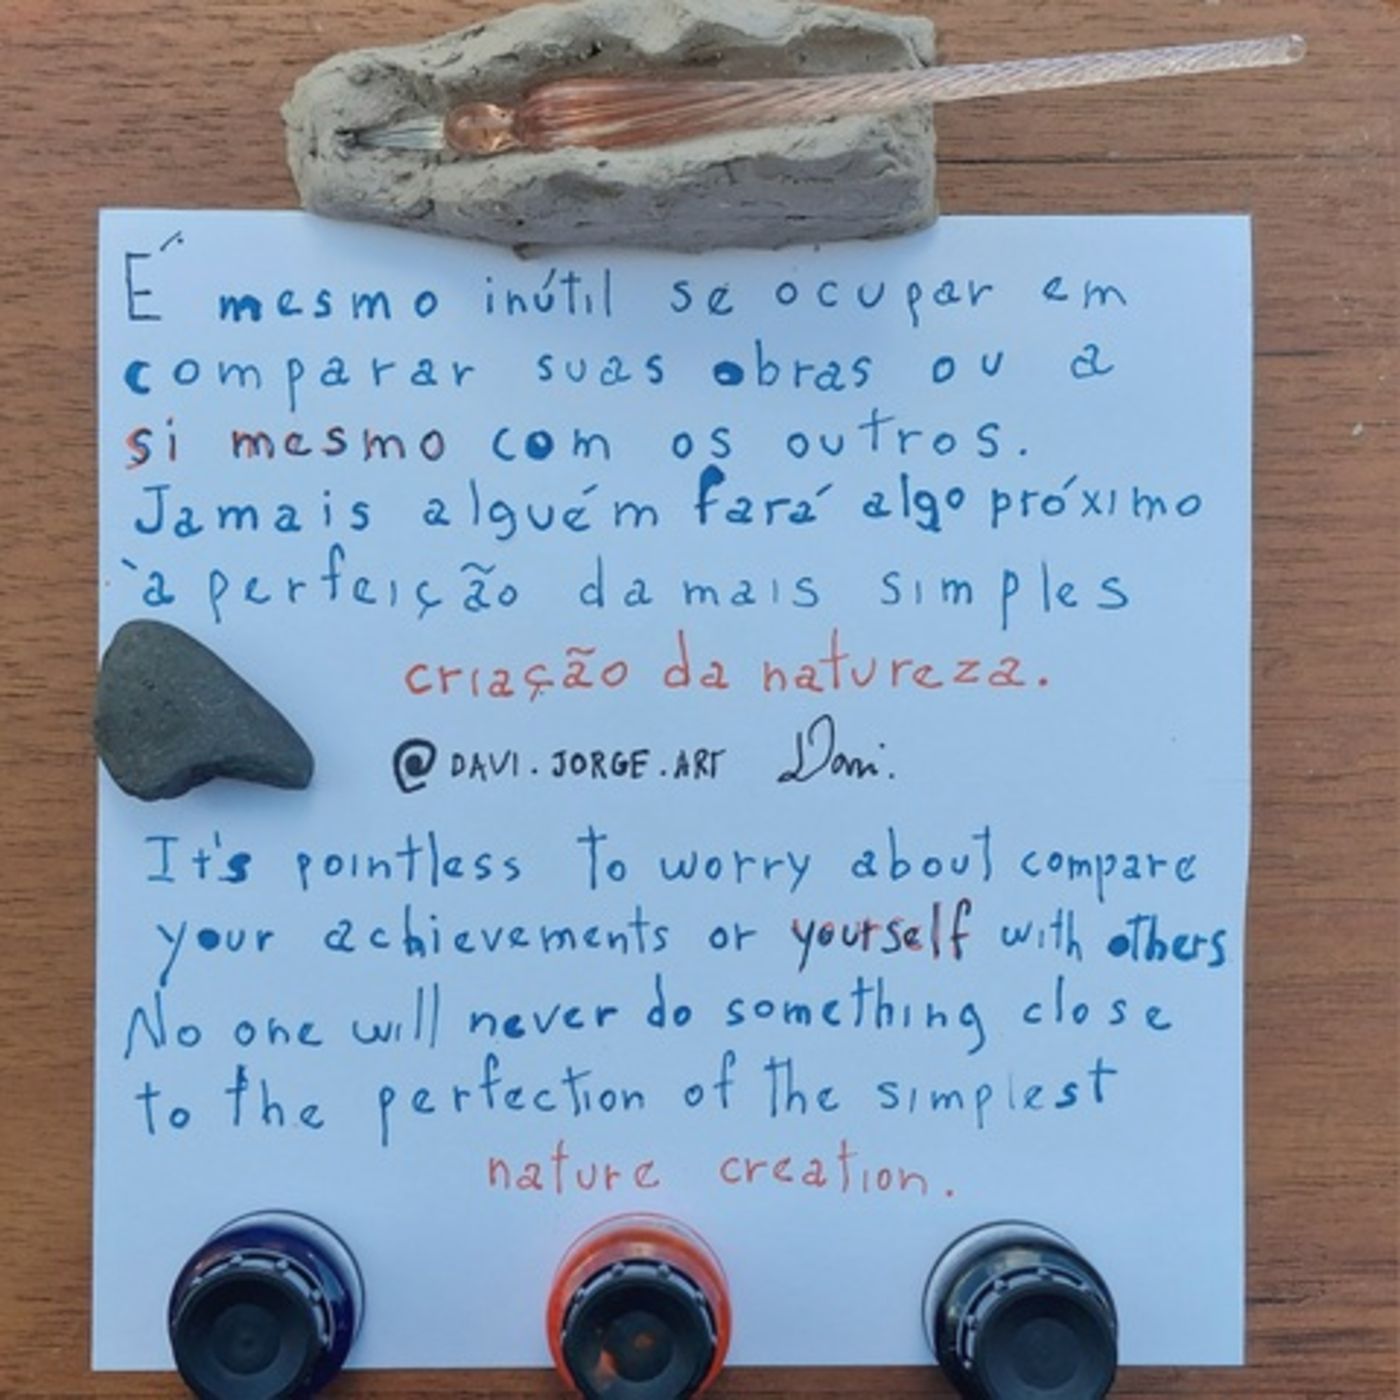 É mesmo inútil se ocupar em
comparar suas obras ou a
si mesmo com os outros.
Jamais alguém fará algo próximo
à perfeição da mais simples
criação da natureza.
@DAVI.JORGE.ART Davi.
It's pointless to worry about compare
your achievements or yourself with others
No one will never do something close
to the perfection of the simplest
nature creation.